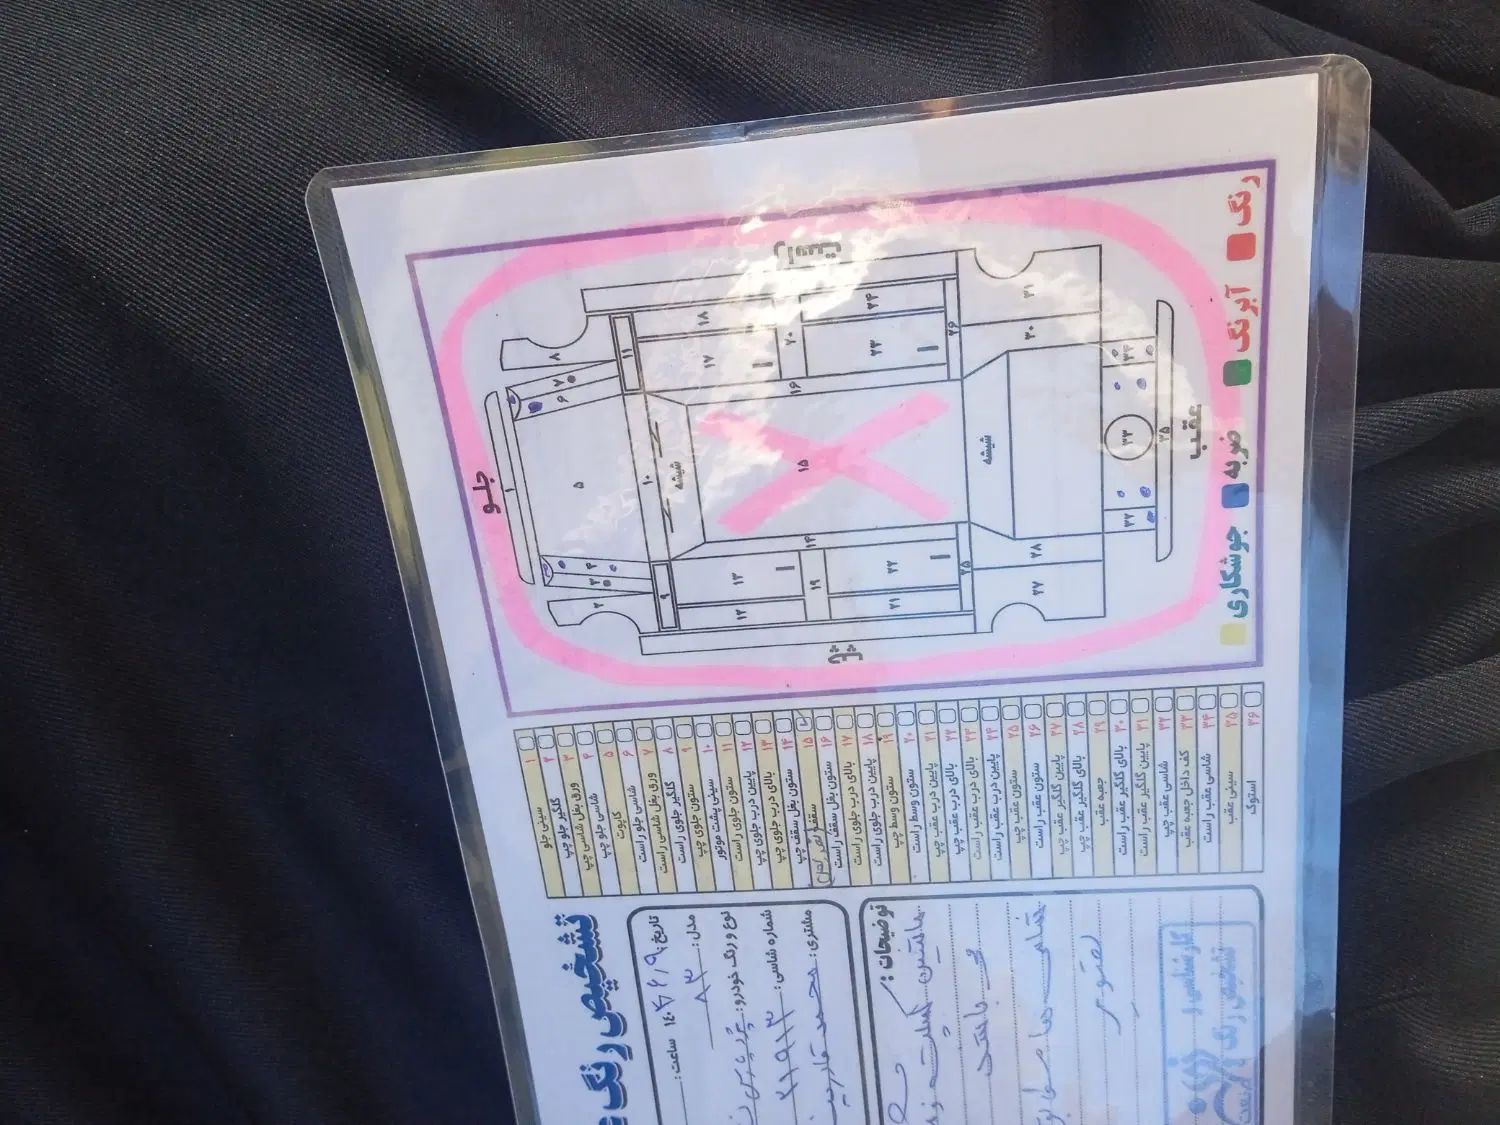 رنگ
آبرنگ
ضربه
جوشکاری
جلو
عقب
چپ
شیشه
شیشه
۱ سینی جلو
۲ گلگیر جلو چپ
۳ ورق بغل شاسی چپ
۴ شاسی جلو چپ
۵ کاپوت
۶ شاسی جلو راست
۷ ورق بغل شاسی راست
۸ گلگیر جلوی راست
۹ ستون جلوی چپ
۱۰ سینی پشت موتور
۱۱ ستون جلوی راست
۱۲ پایین درب جلوی چپ
۱۳ بالای درب جلوی چپ
۱۴ ستون بغل سقف چپ
۱۵ سقف
۱۶ ستون بغل سقف راست
۱۷ بالای درب جلوی راست
۱۸ پایین درب جلوی راست
۱۹ ستون وسط چپ
۲۰ ستون وسط راست
۲۱ پایین درب عقب چپ
۲۲ بالای درب عقب چپ
۲۳ بالای درب عقب راست
۲۴ پایین درب عقب راست
۲۵ ستون عقب چپ
۲۶ ستون عقب راست
۲۷ پایین گلگیر عقب چپ
۲۸ بالای گلگیر عقب چپ
۲۹ جعبه عقب
۳۰ بالای گلگیر عقب راست
۳۱ پایین گلگیر عقب راست
۳۲ شاسی عقب چپ
۳۳ کف داخل جعبه عقب
۳۴ شاسی عقب راست
۳۵ سینی عقب
۳۶ استوک
تشخیص رنگ
تاریخ: ۱۴۰ ساعت:
مدل: ۸۳
نوع و رنگ خودرو:
شماره شاسی:
مشتری: محمد
توضیحات:
ماشین
می باشد
تصویر
کارشناسی و
تشخیص رنگ